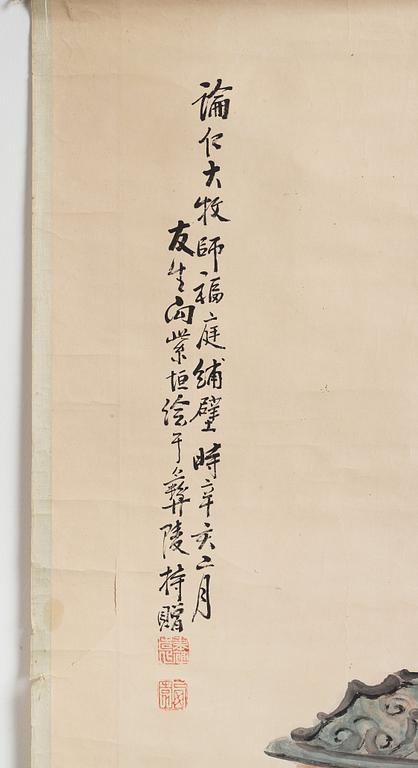 論仁大牧師福庭補壁時辛亥二月
友生向紫垣繪于彝陵持贈